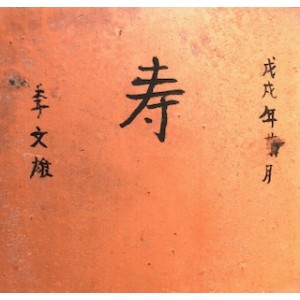 戊戌年 月
寿
李文雄